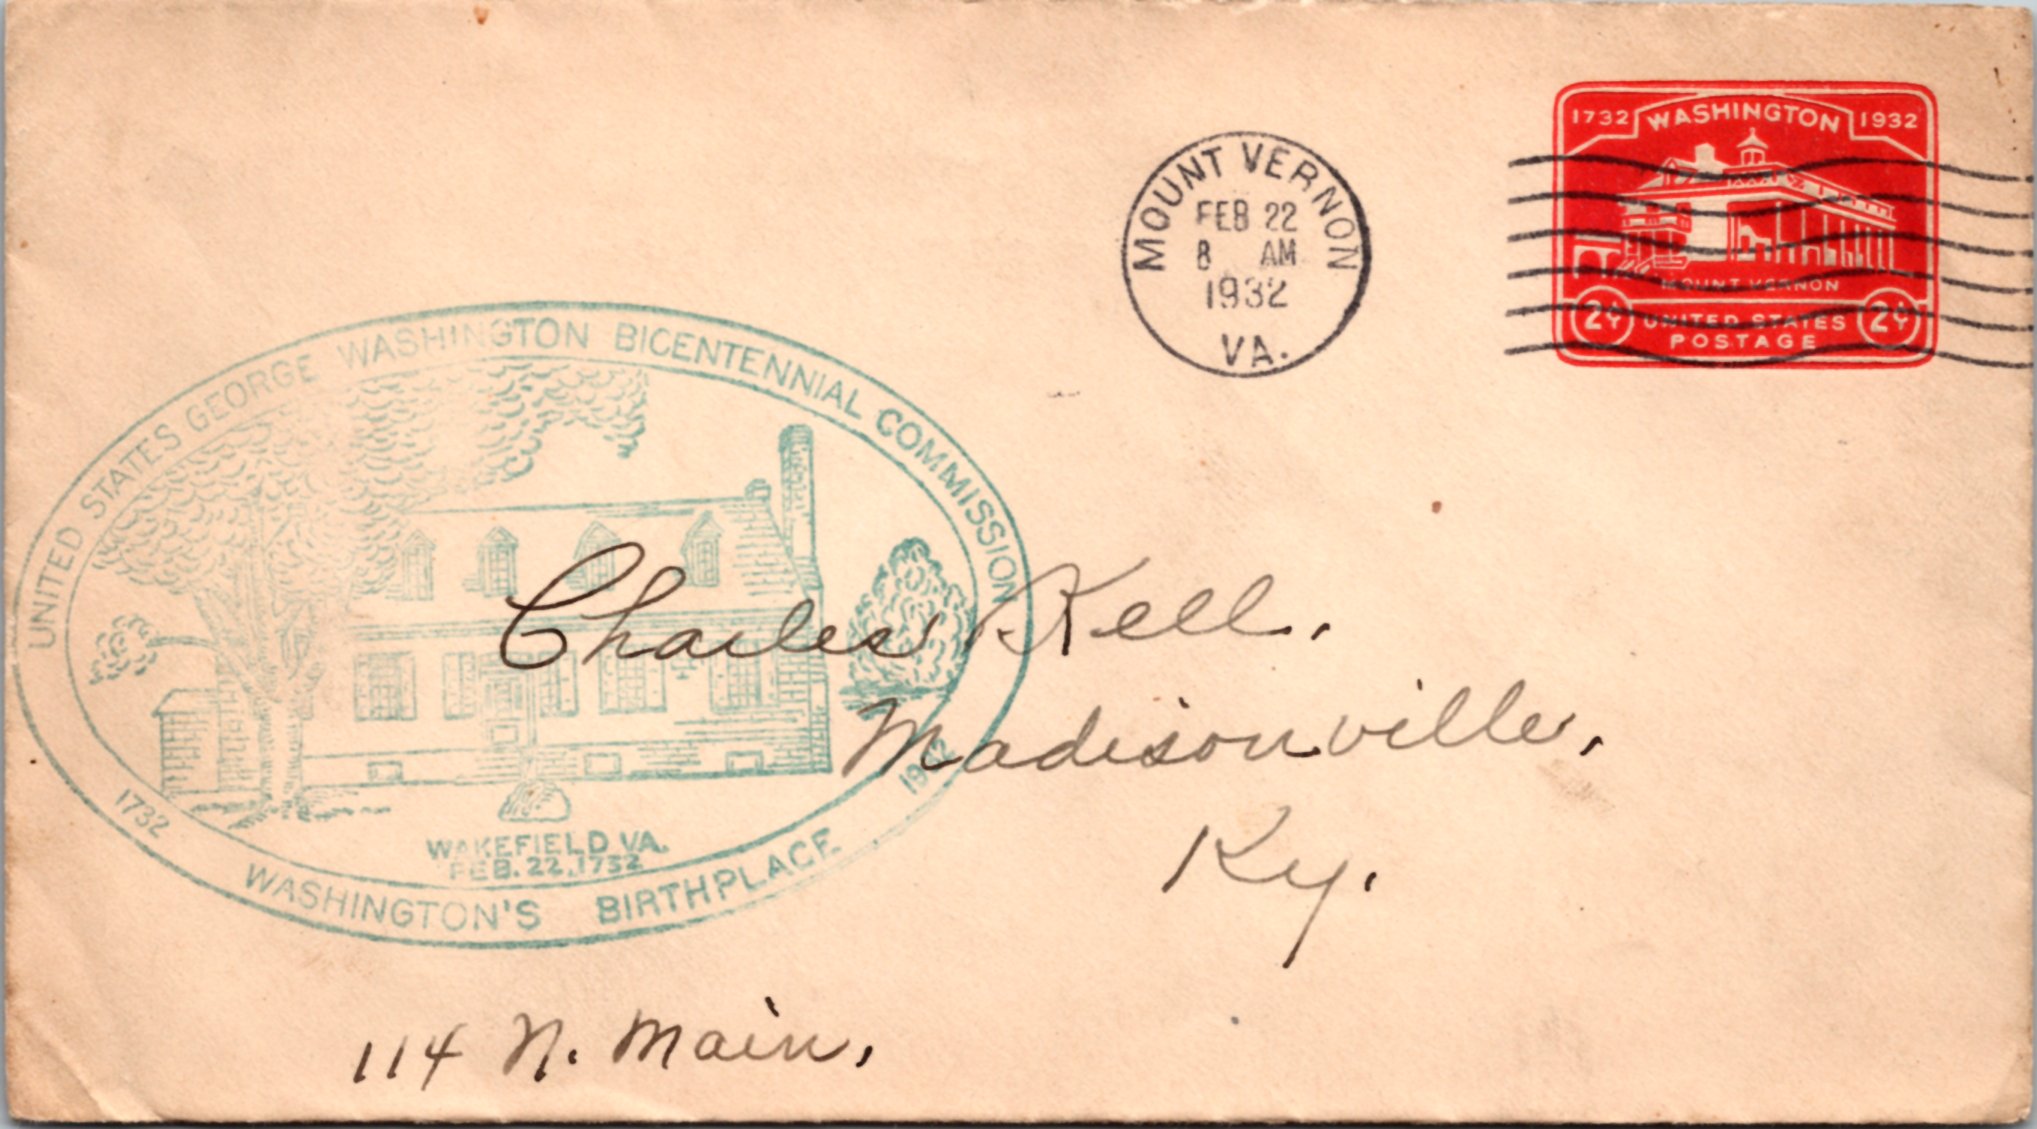 1732 WASHINGTON 1932
MOUNT VERNON
2¢ UNITED STATES 2¢
POSTAGE
MOUNT VERNON
FEB 22
8 AM
1932
VA.
UNITED STATES GEORGE WASHINGTON BICENTENNIAL COMMISSION
1732 1932
WAKEFIELD VA.
FEB. 22, 1732
WASHINGTON'S BIRTHPLACE
Charles Kell.
Madisonville,
Ky.
114 N. Main,